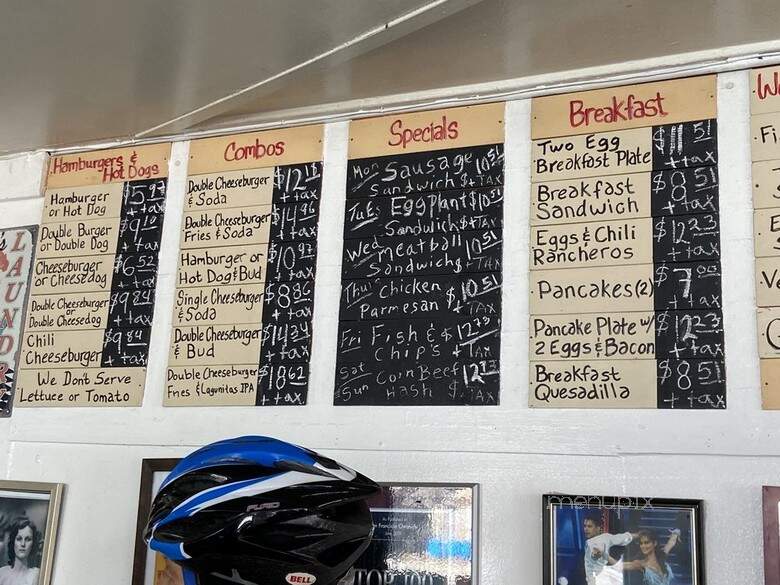 Hamburgers &
Hot Dogs
Hamburger
or Hot Dog
$5.97
+ tax
Double Burger
or Double Dog
$9.12
+ tax
Cheeseburger
or Cheesedog
$6.52
+ tax
Double Cheeseburger
or Double Cheesedog
$9.84
+ tax
Chili
Cheeseburger
$9.84
+ tax
We Don't Serve
Lettuce or Tomato
Combos
Double Cheeseburger
& Soda
+ tax
Double Cheeseburger
Fries & Soda
$14.46
+ tax
Hamburger or
Hot Dog & Bud
$10.97
+ tax
Single Cheeseburger
& Soda
$8.86
+ tax
Double Cheeseburger
& Bud
$14.34
+ tax
Double Cheeseburger
Fries & Lagunitas IPA
$18.62
+ tax
Specials
Mon Sausage 10.51
Sandwich $ + TAX
Tues EggPlant $10.51
Sandwich $ + TAX
Wed meatball 10.51
Sandwich $ + TAX
Thu Chicken
Parmesan $10.51
+ TAX
Fri Fish & $12.23
Chip's + TAX
Sat Corn Beef 12.23
Sun Hash $ + TAX
Breakfast
Two Egg
Breakfast Plate
$11.51
+ tax
Breakfast
Sandwich
$8.51
+ tax
Eggs & Chili
Rancheros
$12.23
+ tax
Pancakes (2)
+ tax
Pancake Plate w/
2 Eggs & Bacon
$12.23
+ tax
Breakfast
Quesadilla
$8.51
+ tax
LAUND
FURIO
BELL
San Francisco Chronicle
TOP 100
menupix